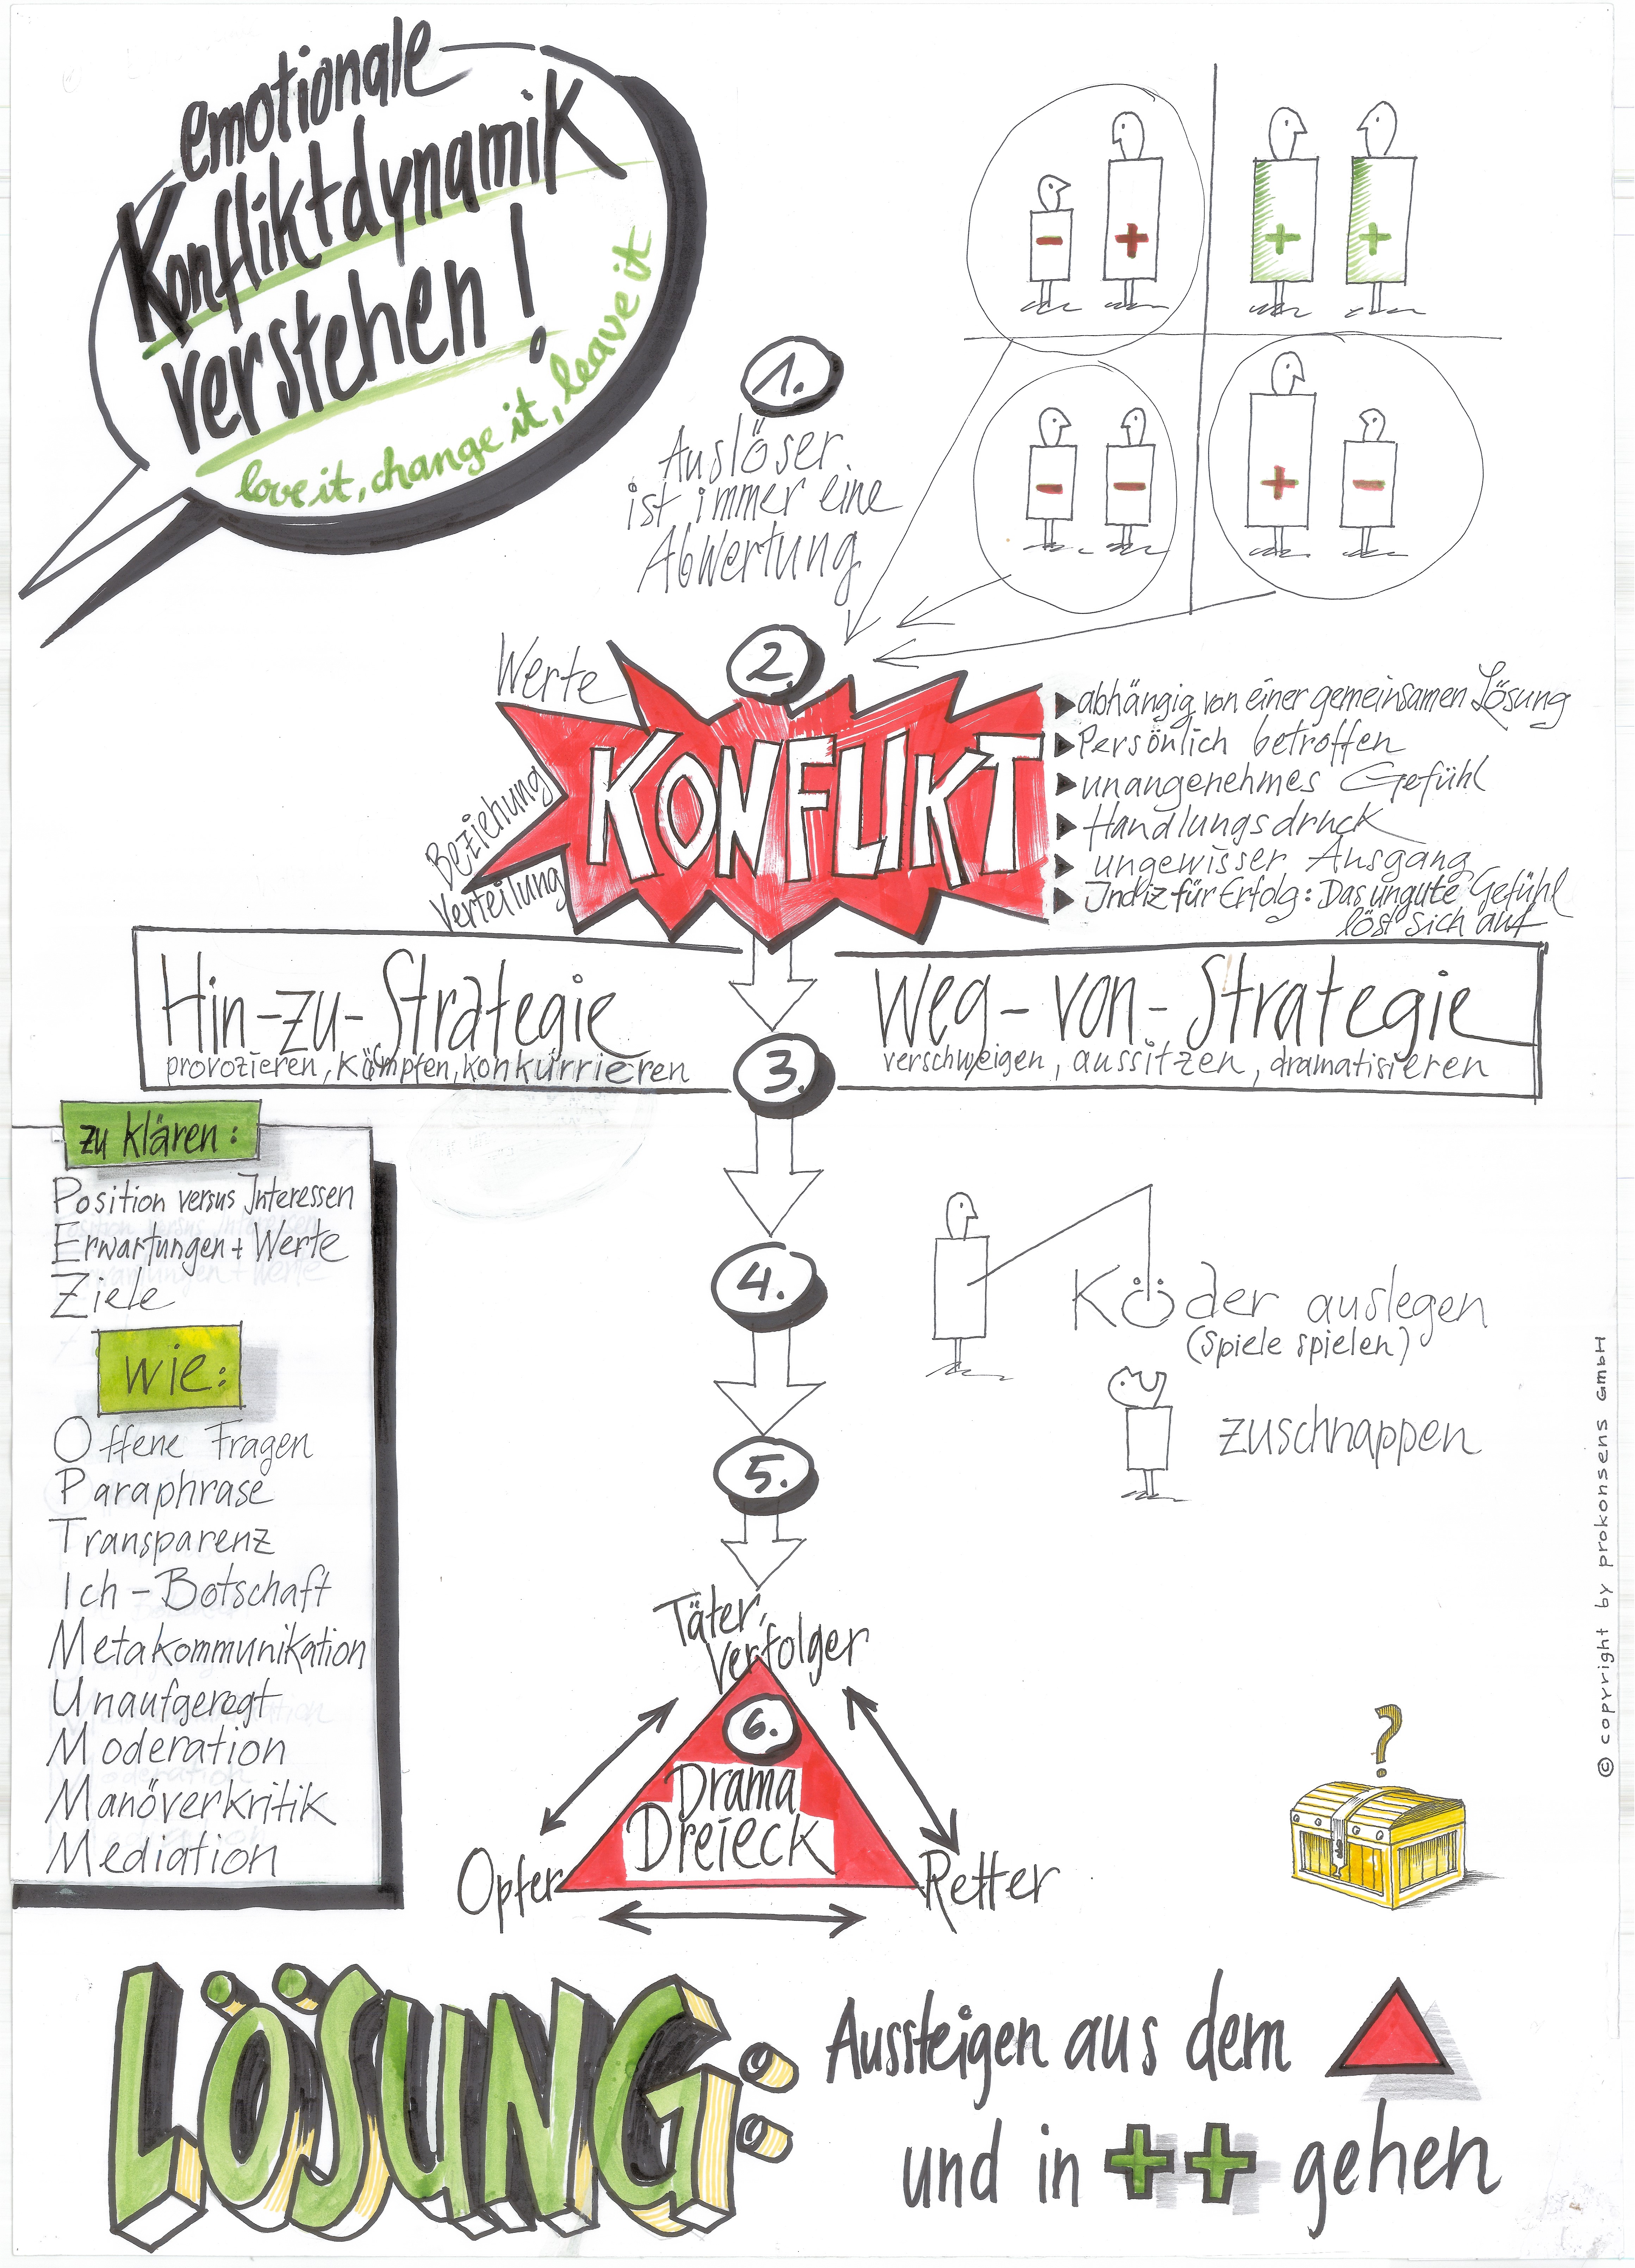 emotionale
Konfliktdynamik
verstehen!
love it, change it, leave it
- +
+ +
- -
+ -
1.
Auslöser
ist immer eine
Abwertung
2.
Werte
Beziehung
Verteilung
KONFLIKT
abhängig von einer gemeinsamen Lösung
Persönlich betroffen
unangenehmes Gefühl
Handlungsdruck
ungewisser Ausgang
Indiz für Erfolg: Das ungute Gefühl
löst sich auf
Hin-zu-Strategie
provozieren, kämpfen, konkurrieren
Weg-von-Strategie
verschweigen, aussitzen, dramatisieren
3.
zu klären:
Position versus Interessen
Erwartungen + Werte
Ziele
wie:
Offene Fragen
Paraphrase
Transparenz
Ich-Botschaft
Metakommunikation
Unaufgeregt
Moderation
Manöverkritik
Mediation
4.
Köder auslegen
(Spiele spielen)
5.
zuschnappen
Täter,
Verfolger
6.
Drama
Dreieck
Opfer
Retter
?
© copyright by prokonsens GmbH
LÖSUNG:
Aussteigen aus dem
und in ++ gehen